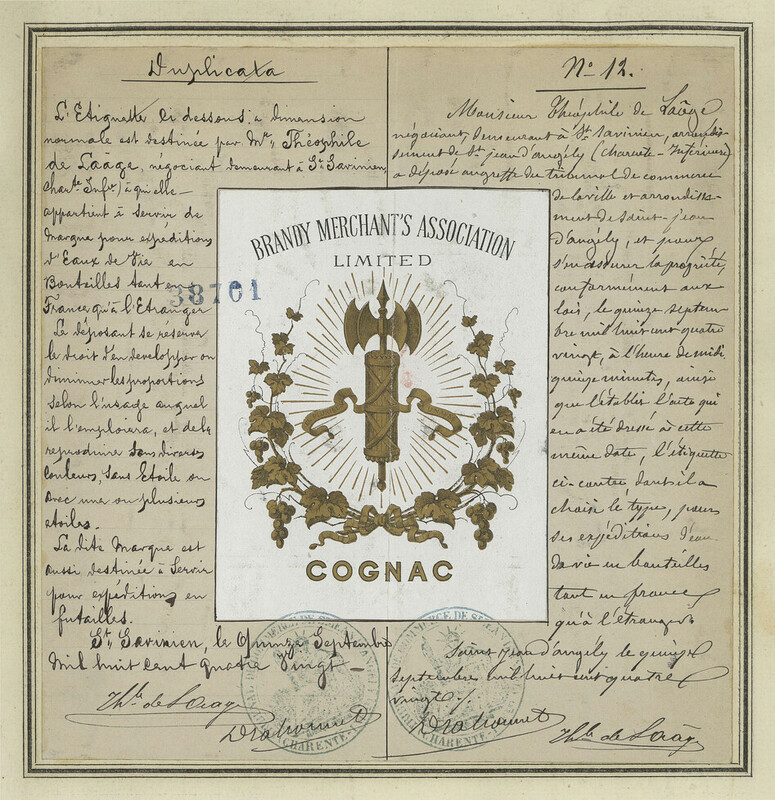 Duplicata
L'Etiquette ci dessous, à dimension
normale est destinée par Mr. Théophile
de Laage, négociant demeurant à St. Savinien,
Charte Infre) à qui elle
appartient à servir de
Marque pour expéditions
d'Eaux de Vie en
Bouteilles tant en
France qu'à l'Etranger
Le déposant se réserve
le droit d'en developper ou
diminuer les proportions
selon l'usage auquel
il l'emploiera, et de la
reproduire sans diverses
couleurs, sans Etoile ou
avec une ou plusieurs
étoiles.
La dite Marque est
aussi destinée à servir
pour expéditions en
futailles.
St. Savinien, le Quinze Septembre
Mil huit cent quatre Vingt
Thle. de Laage
38761
BRANDY MERCHANT'S ASSOCIATION
LIMITED
COGNAC
No. 12.
Monsieur Théophile de Laâge
négociant, demeurant à St. Savinien, arrondis-
sement de St. jean d'angély (charente-Inférieure)
a déposé au greffe du tribunal de commerce
de la ville et arrondisse-
ment de Saint-jean
d'angély, et pour
s'en assurer la propriété,
conformément aux
lois, le quinze septem-
bre mil huit cent quatre
vingt, à l'heure de midi
quinze minutes, ainsi
que l'établit l'acte qui
en a été dressé à cette
même date, l'étiquette
ci-contre dont il a
choisi le type, pour
ses expéditions d'eau
de vie en bouteilles
tant en france
qu'à l'étranger
Saint jean d'angély le quinze
septembre mil huit cent quatre
vingt ./.
Thle. de Laâge